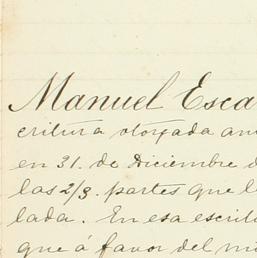 Manuel Esca
critura otorgada an
en 31. de Diciembre d
las 2/3. partes que l
lada. En esa escrit
que á favor del mi